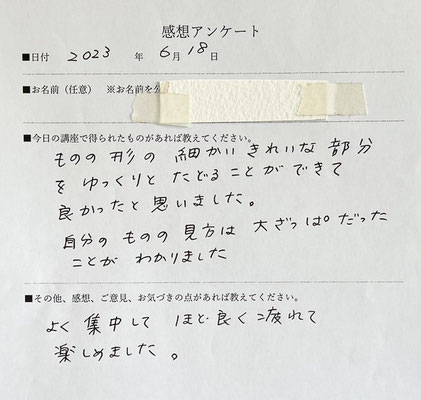 感想アンケート
■日付 2023 年 6月 18日
■お名前（任意） ※お名前を
■今日の講座で得られたものがあれば教えてください。
ものの形の細かいきれいな部分
をゆっくりとたどることができて
良かったと思いました。
自分のものの見方は大ざっぱだった
ことがわかりました
■その他、感想、ご意見、お気づきの点があれば教えてください。
よく集中してほど良く疲れて
楽しめました。